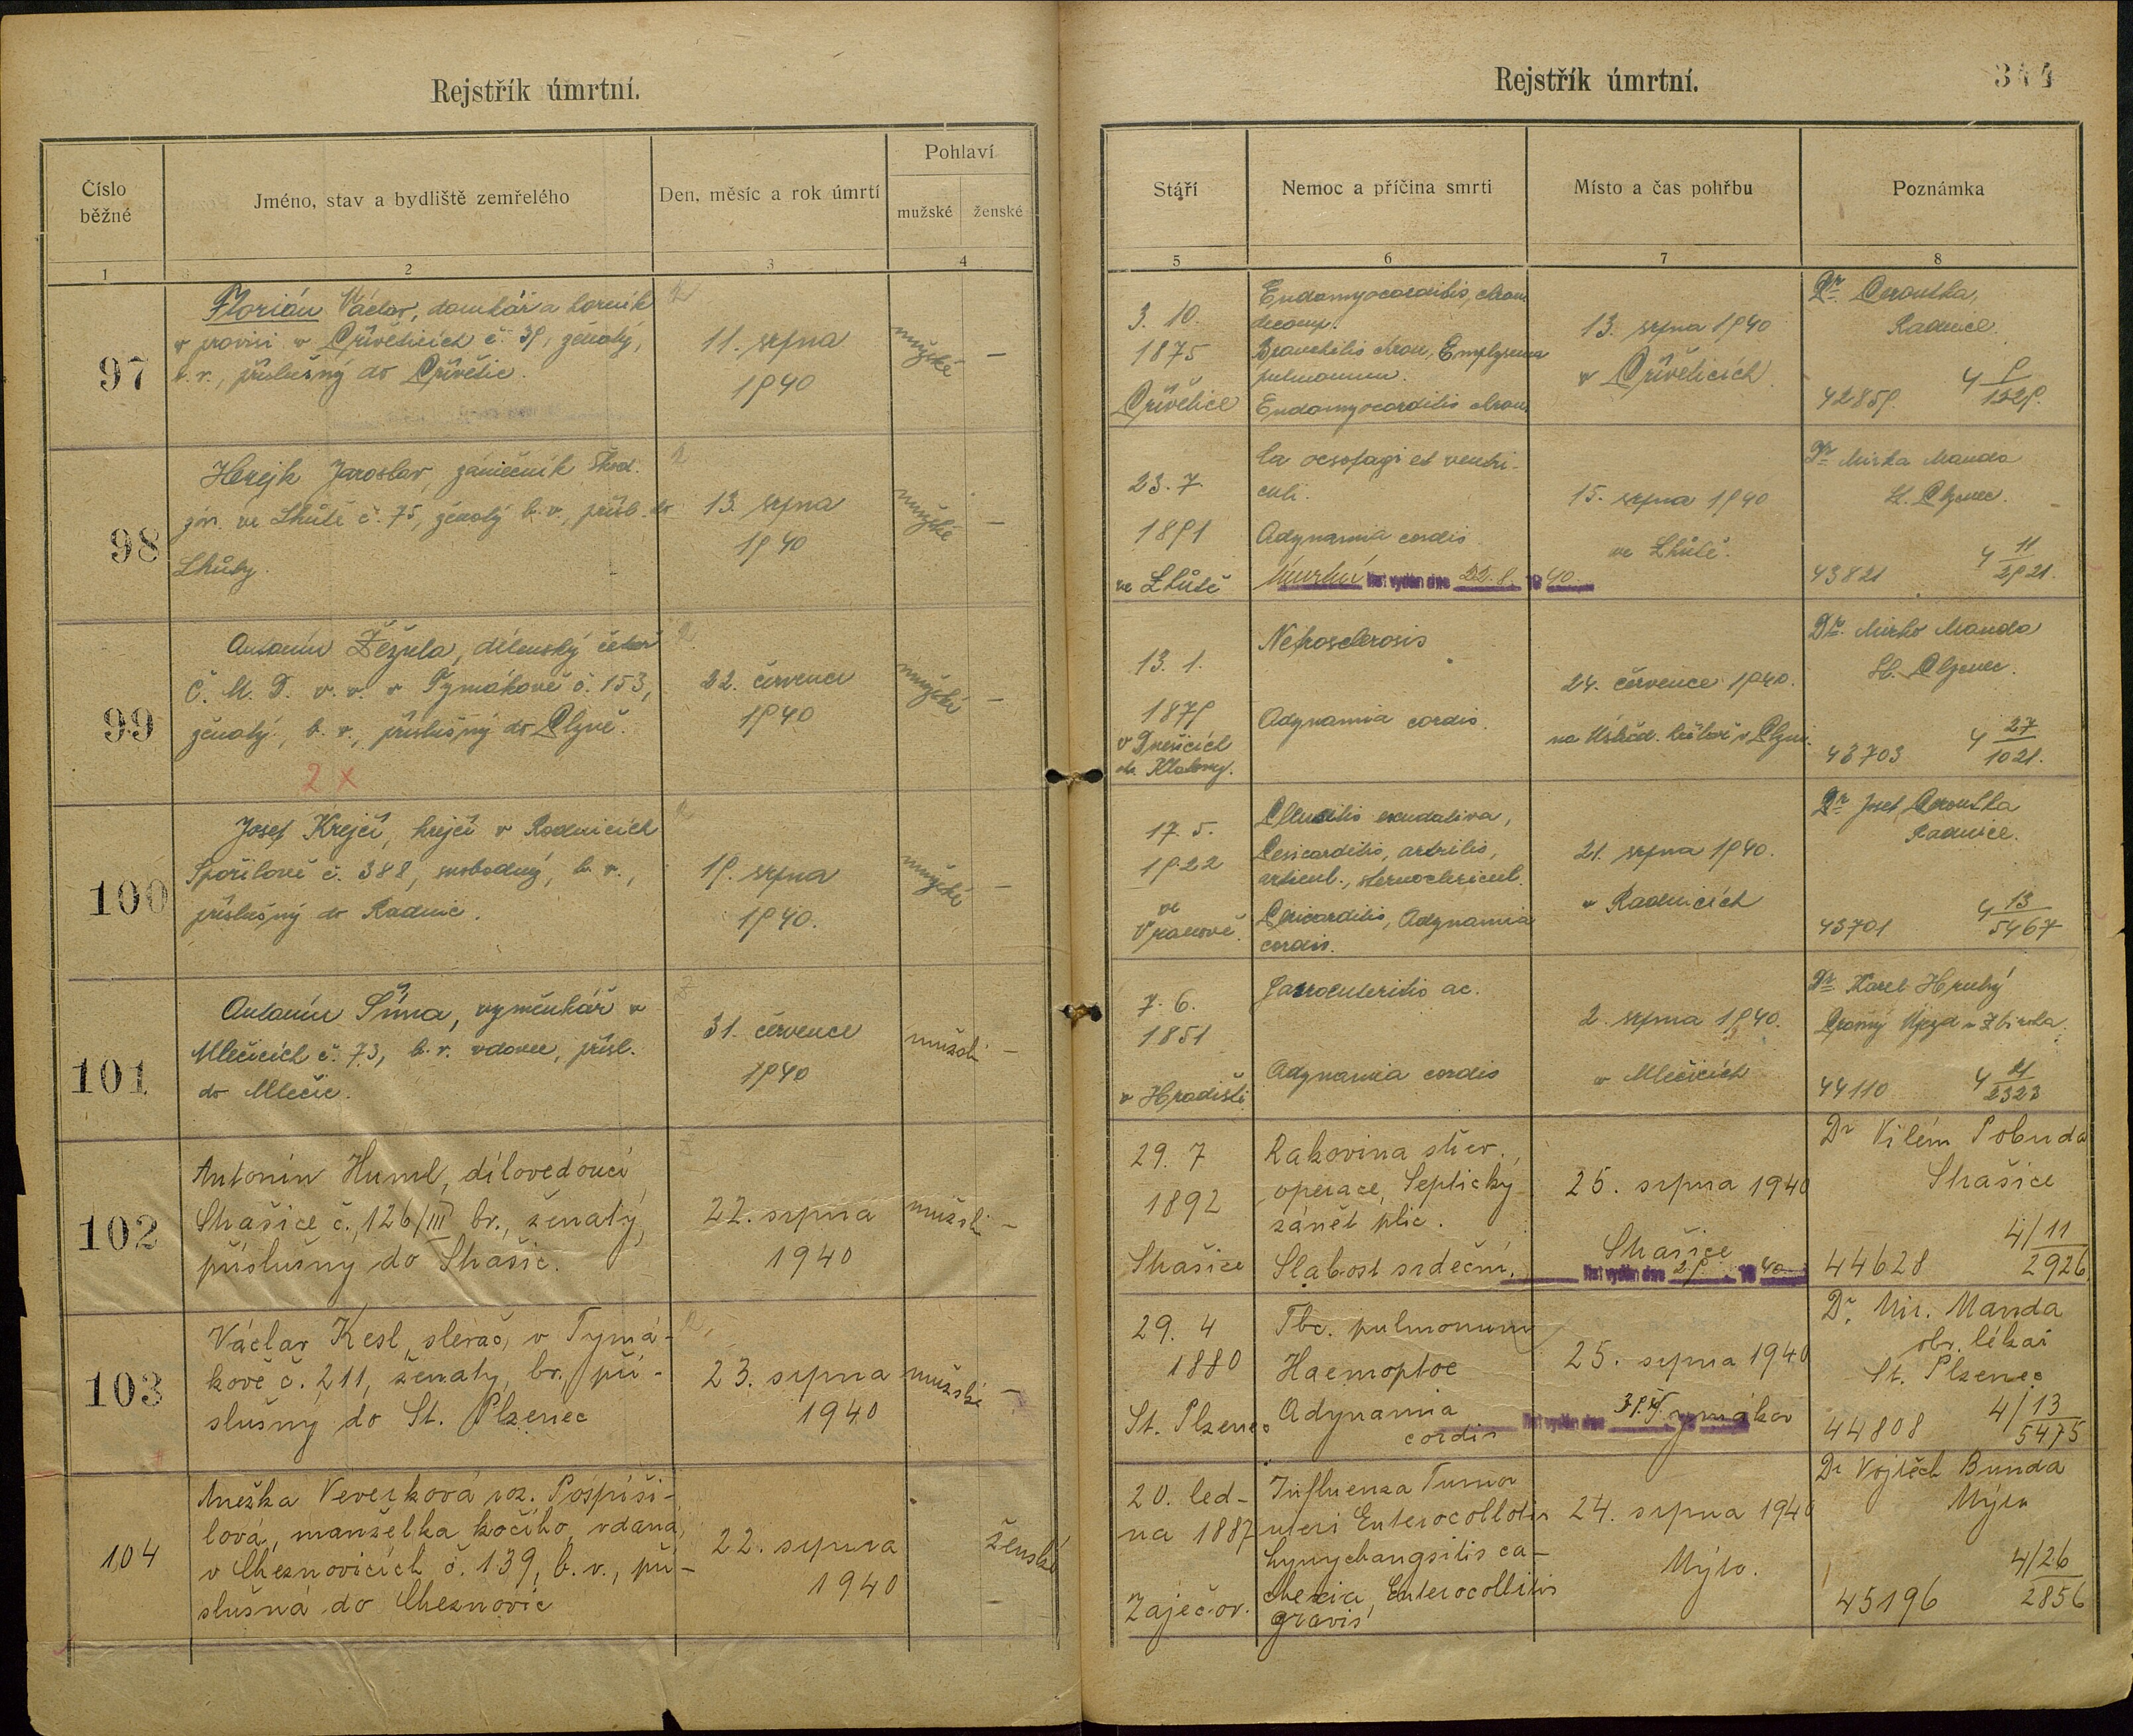 Rejstřík úmrtní.
Číslo běžné
Jméno, stav a bydliště zemřelého
Den, měsíc a rok úmrtí
Pohlaví
mužské
ženské
1
2
3
4
Rejstřík úmrtní.
344
Stáří
Nemoc a příčina smrti
Místo a čas pohřbu
Poznámka
5
6
7
8
97
Florián Václav, domkář a horník
v provisi v Přívěticích č. 39, ženatý,
b. v., příslušný do Přívětic.
11. srpna
1940
mužské
–
3. 10.
1875
Přívětice
Endomyocarditis, chron
decomp.
Bronchitis chron, Emphysema
pulmonum.
Endomyocarditis chron.
13. srpna 1940
v Přívěticích.
Dr. Peroutka,
Radnice.
42859.
4 9/1329.
98
Herejk Jaroslav, zámečník Škod.
záv. ve Lhůtě č. 75, ženatý b. v., přísl. do
Lhůty.
13. srpna
1940
mužské
–
23. 7.
1891
ve Lhůtě
Ca oesofagi et ventri-
culi.
Adynamia cordis.
Úmrtní list vydán dne 22. 8. 1940
15. srpna 1940
ve Lhůtě.
Dr Mirko Manda
St. Plzenec.
43821
4 11/2921.
99
Antonín Žežula, dílenský četař
Č. M. D. v. v. v Tymákově č. 153,
ženatý, b. v., příslušný do Plzně.
2 x
22. července
1940
mužské
–
13. 1.
1879
v Dnešicích
ok. Klatovy.
Nefrosclerosis
Adynamia cordis.
24. července 1940.
na Ústřed. hřbitově v Plzni.
Dr. Mirko Manda
St. Plzenec.
43703
4 27/1021.
100
Josef Krejčí, krejčí v Radnicích
Spořilově č. 388, svobodný, b. v.,
příslušný do Radnic.
19. srpna
1940.
mužské
–
17. 5.
1922
ve
Vranově.
Pleuritis exudativa,
Pericarditis, artritis,
articul., sternoclavicul.
Pericarditis, Adynamia
cordis.
21. srpna 1940.
v Radnicích
Dr Josef Peroutka
Radnice.
43701
4 13/5467
101
Antonín Šůna, výměnkář v
Mlečicích č. 73, b. v. vdovec, přísl.
do Mlečic.
31. července
1940
mužské
–
7. 6.
1851
v Hradišti
Gastroenteritis ac.
Adynamia cordis
2. srpna 1940.
v Mlečicích
Dr Karel Hrubý
Drahý Újezd u Zbiroha.
44110
102
Antonín Huml, dílovedoucí
Strašice č. 126/III br., ženatý,
příslušný do Strašic.
22. srpna
1940
mužské
–
29. 7
1892
Strašice
Rakovina střev.,
operace, Septický
zánět plic.
Slabost srdeční.
25. srpna 1940
Strašice
list vydán dne
1940
Dr Vilém Pobuda
Strašice
44628
4/11 2926
103
Václav Kesl, slevač, v Tymá-
kově č. 211, ženatý, br., pří-
slušný do St. Plzenec
23. srpna
1940
mužské
–
29. 4
1880
St. Plzenec
Tbc. pulmonum
Haemoptoe
Adynamia
cordis
25. srpna 1940
list vydán dne
Tymákov
Dr. Mir. Manda
obv. lékař
St. Plzenec
44808
4/13 5475
104
Anežka Deverková roz. Pospíši-
lová, manželka kočího, vdaná,
v Cheznovicích č. 139, b. v., pří-
slušná do Cheznovic
22. srpna
1940
ženské
20. led-
na 1887
Zaječov.
Influenza Tumor
uteri
ca-
chexia, Enterocollitis
gravis
24. srpna 1940
Mýto.
Dr Vojtěch Bunda
Mýto
45196
4/26 2856